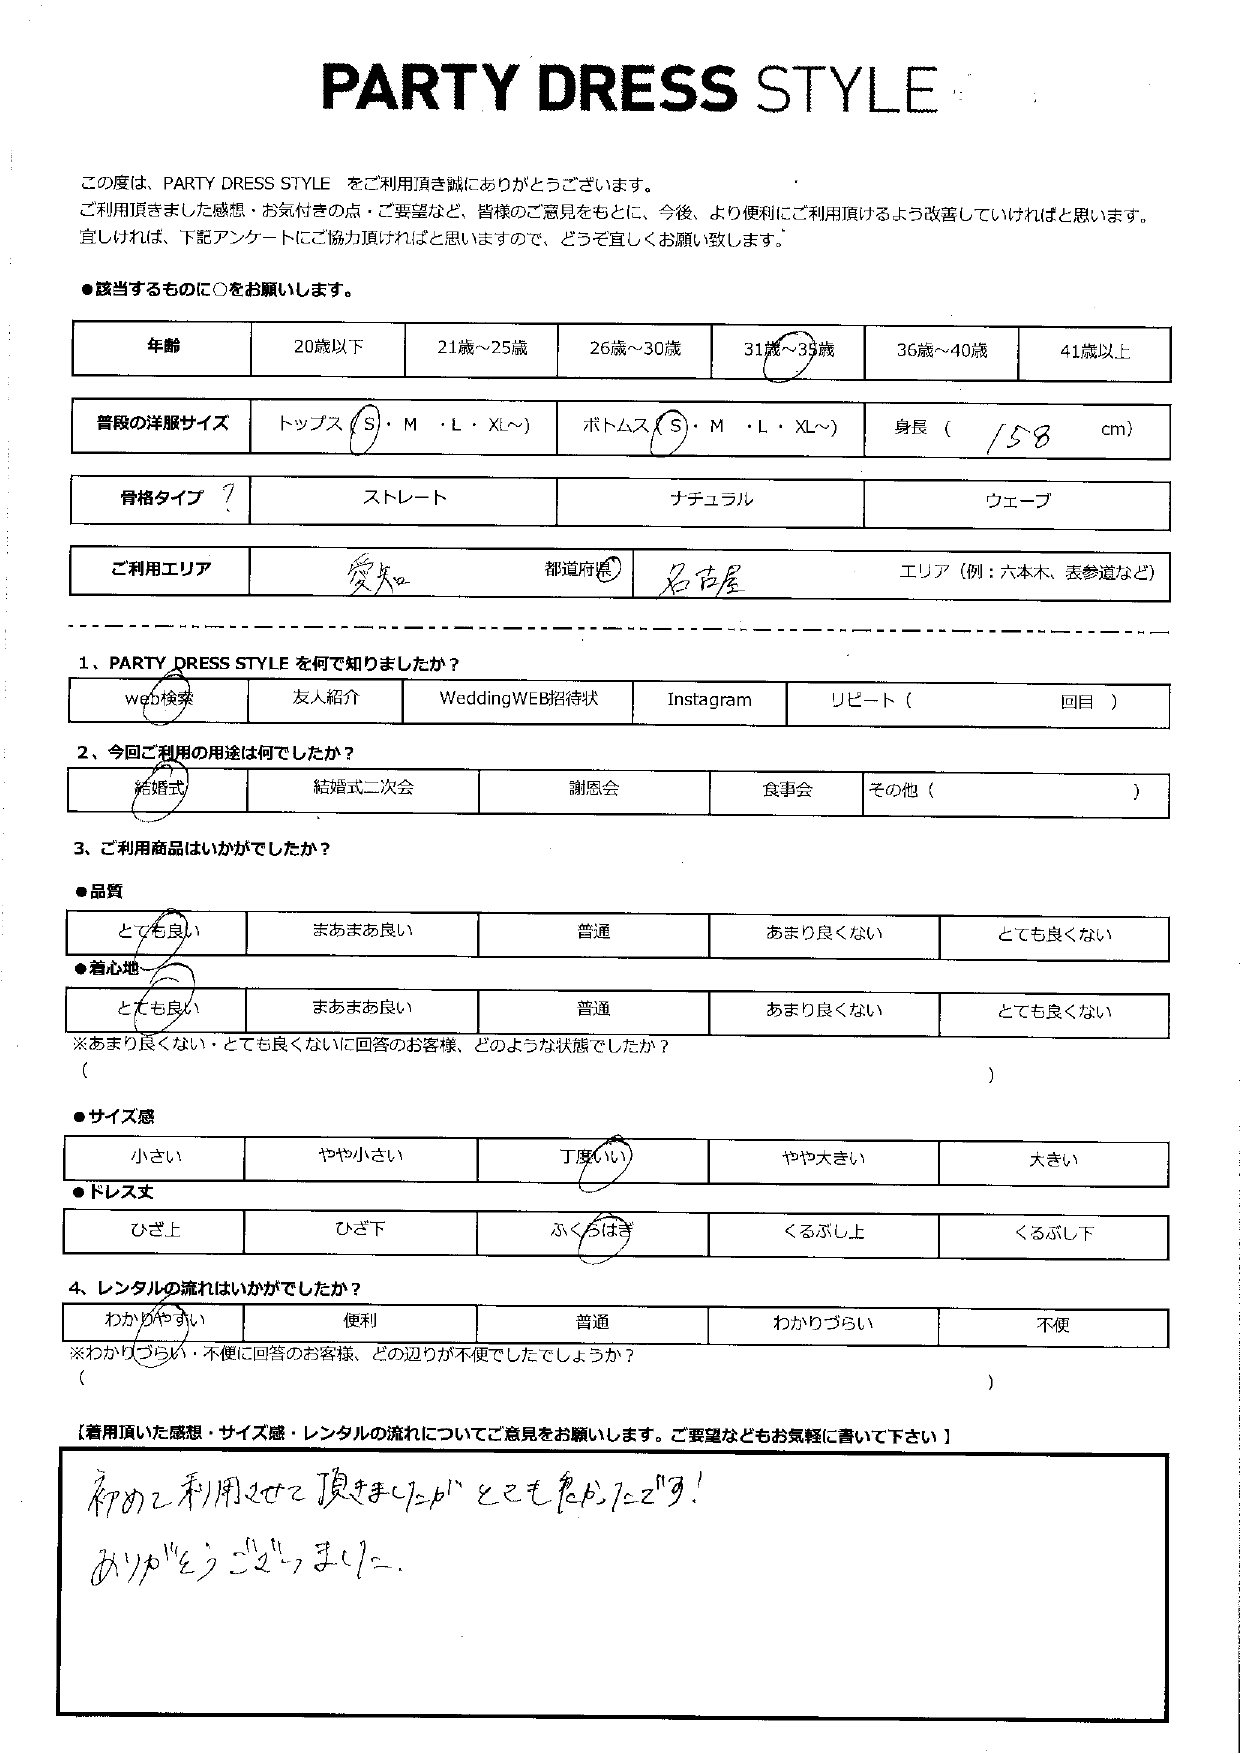 PARTY DRESS STYLE
この度は、PARTY DRESS STYLE をご利用頂き誠にありがとうございます。
ご利用頂きました感想・お気付きの点・ご要望など、皆様のご意見をもとに、今後、より便利にご利用頂けるよう改善していければと思います。
宜しければ、下記アンケートにご協力頂ければと思いますので、どうぞ宜しくお願い致します。
●該当するものに○をお願いします。
年齢 20歳以下 21歳～25歳 26歳～30歳 31歳～35歳 36歳～40歳 41歳以上
普段の洋服サイズ トップス（S・M ・L・XL～） ボトムス（S・M ・L・XL～） 身長（158 cm）
骨格タイプ ? ストレート ナチュラル ウェーブ
ご利用エリア 愛知 都道府県 名古屋 エリア（例：六本木、表参道など）
1、PARTY DRESS STYLE を何で知りましたか？
web検索 友人紹介 WeddingWEB招待状 Instagram リピート（ 回目 ）
2、今回ご利用の用途は何でしたか？
結婚式 結婚式二次会 謝恩会 食事会 その他（ ）
3、ご利用商品はいかがでしたか？
●品質
とても良い まあまあ良い 普通 あまり良くない とても良くない
●着心地
とても良い まあまあ良い 普通 あまり良くない とても良くない
※あまり良くない・とても良くないに回答のお客様、どのような状態でしたか？
（ ）
●サイズ感
小さい やや小さい 丁度いい やや大きい 大きい
●ドレス丈
ひざ上 ひざ下 ふくらはぎ くるぶし上 くるぶし下
4、レンタルの流れはいかがでしたか？
わかりやすい 便利 普通 わかりづらい 不便
※わかりづらい・不便に回答のお客様、どの辺りが不便でしたでしょうか？
（ ）
【着用頂いた感想・サイズ感・レンタルの流れについてご意見をお願いします。ご要望などもお気軽に書いて下さい 】
初めて利用させて頂きましたがとても良かったです！
ありがとうございました.